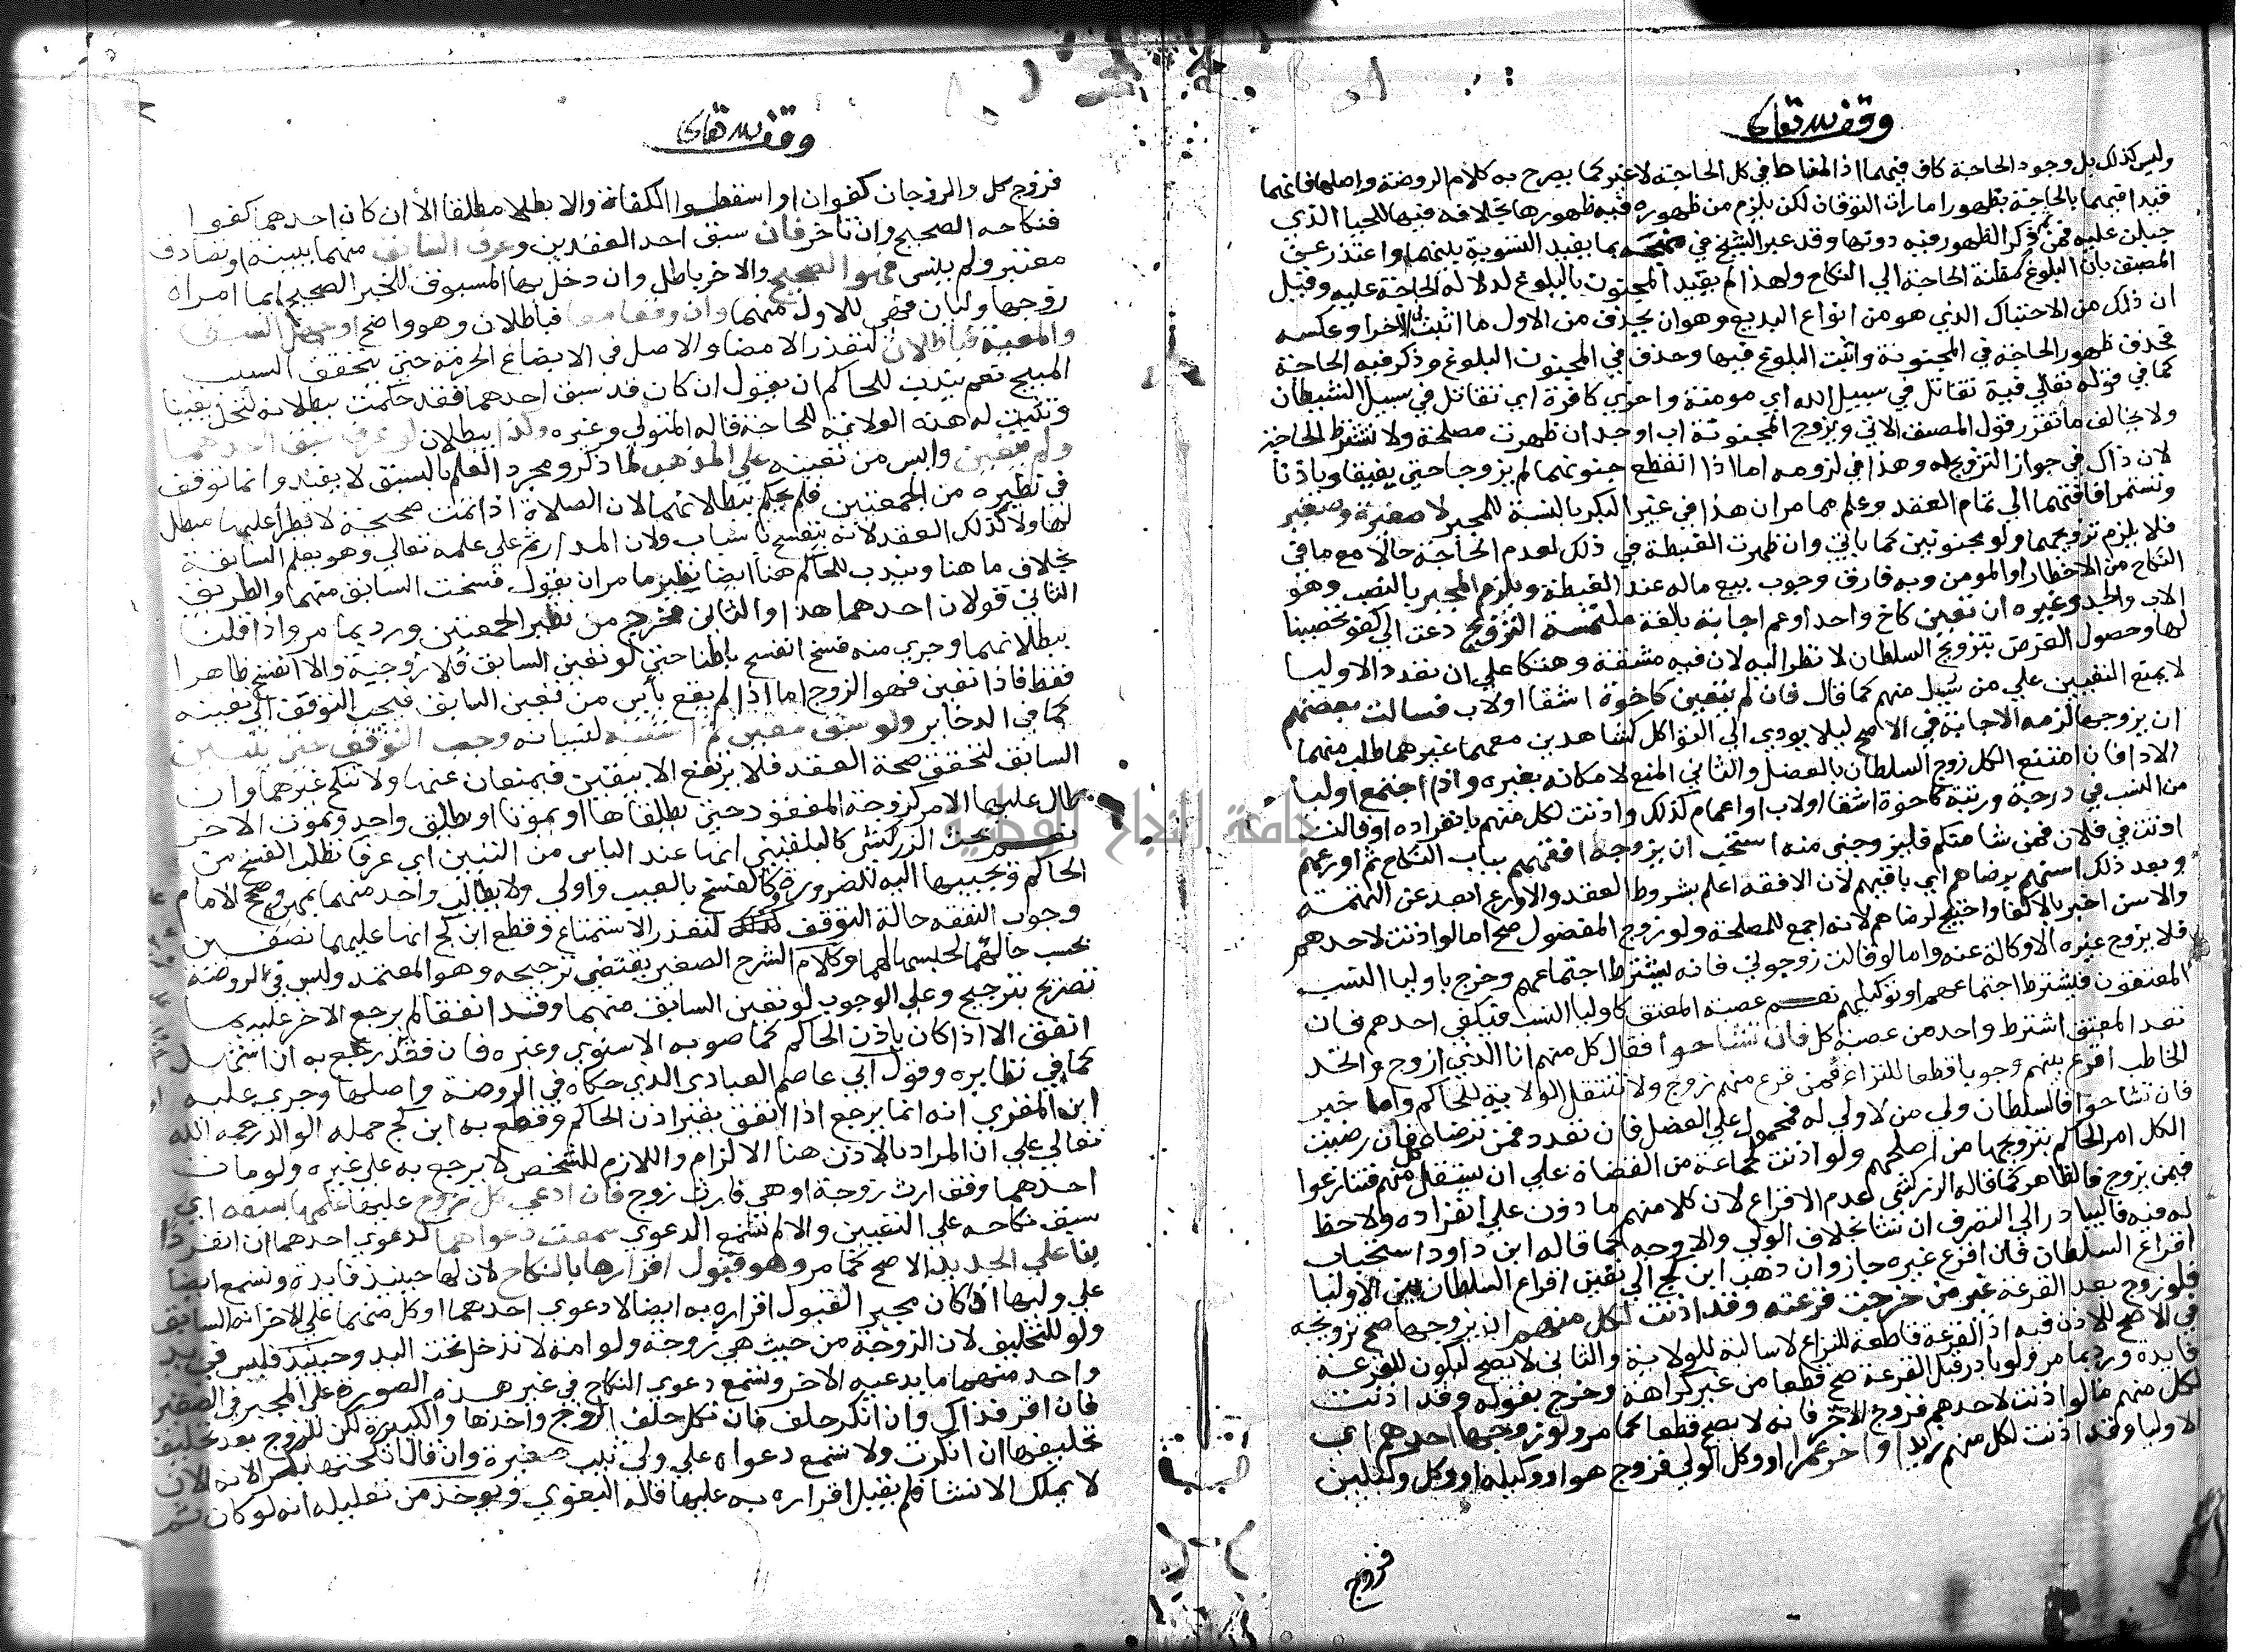 وقف لله تعالى
وليس كذلك بل وجود الحاجة كاف فيهما اذ المناط في كل الحاجة لا غير كما يصرح به كلام الروضة واصلها فانهما
قيداهما بالحاجة بظهور امارات التوقان لكن يلزم من ظهوره فيه ظهورها بخلافه فيها للحيا الذي
جبلن عليه فمن ثم ذكر الظهور فيه دونها وقد عبر الشيخ في منهجه بما يفيد التسوية بينهما واعتذر عن
المصنف بان البلوغ مظنة الحاجة الي النكاح ولهذا لم يقيد المجنون بالبلوغ لدلالة الحاجة عليه وقيل
ان ذلك من الاحتباك الذي هو من انواع البديع وهو ان يحذف من الاول ما اثبت في الاخر وعكسه
فحذف ظهور الحاجة في المجنونة واثبت البلوغ فيها وحذف في المجنون البلوغ وذكر فيه الحاجة
كما في قوله تعالي فية تقاتل في سبيل الله اي مومنة واخري كافرة اي تقاتل في سبيل الشيطان
ولا يخالف ما تقرر قول المصنف الاتي ويزوج المجنونة اب او جد ان ظهرت مصلحة ولا تشترط الحاجة
لان ذاك في جواز التزويج له وهذا في لزومه اما اذا انقطع جنونهما لم يزوجا حتي يفيقا وياذنا
وتستمر افاقتهما الي تمام العقد وعلم مما مر ان هذا في غير البكر بالنسبة للمجبر لا صغيرة وصغير
فلا يلزم تزويجهما ولو مجنونين كما ياتي وان ظهرت الغبطة في ذلك لعدم الحاجة حالا مع ما في
النكاح من الاخطار او المومن وبه فارق وجوب بيع ماله عند الغبطة ويلزم المجبر بالنصب وهو
الاب والجد وغيره ان تعين كاخ واحد او عم اجابة بالغة ملتمسة التزويج دعت الي كفو تحصينا
لها وحصول الغرض بتزويج السلطان لا نظر اليه لان فيه مشقة وهتكا علي ان تعدد الاوليا
لا يمنع التعيين علي من سيل منهم كما قال فان لم يتعين كاخوة اشقا او لاب فسالت بعضهم
ان يزوجها لزمه الاجابة في الاصح ليلا يودي الي التواكل كشاهدين معهما غيرهما طلب منهما
الادا فان امتنع الكل زوج السلطان بالعضل والثاني المنع لامكانه بغيره واذا اجتمع اوليا
من النسب في درجة ورتبة كاخوة اشقا او لاب او اعمام كذلك واذنت لكل منهم بانفراده او قالت
اذنت في فلان فمن شا منكم فليزوجني منه استحب ان يزوجها افقههم بباب النكاح ثم اورعهم
وبعد ذلك اسنهم برضاهم اي باقيهم لان الافقه اعلم بشروط العقد والاورع ابعد عن التهمة
والاسن اخبر بالاكفا واحتيج لرضاهم لانه اجمع للمصلحة ولو زوج المفضول صح اما لو اذنت لاحدهم
فلا يزوج غيره الا وكالة عنه واما لو قالت زوجوني فانه يشترط اجتماعهم وخرج باوليا النسب
المعتقون فيشترط اجتماعهم او توكيلهم نعم عصبة المعتق كاوليا النسب فيكفي احدهم فان
تعدد المعتق اشترط واحد من عصبة كل فان تشاحوا فقال كل منهم انا الذي ازوج واتحد
الخاطب اقرع بينهم وجوبا قطعا للنزاع فمن قرع منهم زوج ولا تنتقل الولاية للحاكم واما خبر
فان تشاحوا فالسلطان ولي من لا ولي له فمحمول علي العضل فان تعدد فمن ترضاه فان رضيت
الكل امر الحاكم بتزويجها من اصلحهم ولو اذنت لجماعة من القضاة علي ان يستقل كل منهم فتنازعوا
فيمن يزوج فالظاهر كما قاله الزركشي عدم الاقراع لان كلا منهم ماذون علي انفراده ولا حظ
له فيه فاليبادر الي التصرف ان شا بخلاف الولي والاوجه كما قاله ابن داود استحباب
اقراع السلطان فان اقرع غيره جاز وان ذهب ابن كج الي تعين اقراع السلطان بين الاوليا
فلو زوج بعد القرعة غير من خرجت قرعته وقد اذنت لكل منهم ان يزوجها صح تزويجه
في الاصح للاذن فيه اذ القرعة قاطعة للنزاع لا سالبة للولاية والثاني لا يصح ليكون للقرعة
فايدة ورد بما مر فلو بادر قبل القرعة صح قطعا من غير كراهة وخرج بقوله وقد اذنت
لكل منهم ما لو اذنت لاحدهم فزوج الاخر فانه لا يصح قطعا كما مر ولو زوجها احدهم اي
الاوليا وقد اذنت لكل منهم زيدا واخر عمرا او وكل الولي فزوج هو او وكيله او وكل وكيلين
فزوج
وقف لله تعالى
فزوج كل والزوجان كفوان او اسقطوا الكفاة والا بطلا مطلقا الا ان كان احدهما كفوا
فنكاحه الصحيح وان تاخر فان سبق احد العقدين وعرف السابق منهما ببينة او تصادف
معتبر ولم ينسي فهو الصحيح والاخر باطل وان دخل بها المسبوق للخبر الصحيح ايما امراة
زوجها وليان فهي للاول منهما وان وقعا معا فباطلان وهو واضح او جهل السبق
والمعية فباطلان لتعذر الامضا والاصل في الابضاع الحرمة حتي يتحقق السبب
المبيح نعم يندب للحاكم ان يقول ان كان قد سبق احدهما فقد حكمت ببطلانه لتحل يقينا
وتثبت له هذه الولاية للحاجة قاله المتولي وغيره وكذا يبطلان لو عرف سبق احدهما
ولم يتعين وايس من تعينه علي المذهب لما ذكر ومجرد العلم بالسبق لا يفيد وانما توقف
في نظيره من الجمعتين فلم يحكم ببطلانهما لان الصلاة اذا تمت صحيحة لا يطرا عليها مبطل
لها ولا كذلك العقد لانه ينفسخ باسباب ولان المدار ثم علي علمه تعالي وهو يعلم السابقة
بخلاف ما هنا ويندب للحاكم هنا ايضا نظير ما مر ان يقول فسخت السابق منهما والطريق
الثاني قولان احدهما هذا والثاني مخرج من نظير الجمعتين ورد بما مر واذا قلنا
ببطلانهما وجري منه فسخ انفسخ باطنا حتي لو تعين السابق فلا زوجية والا انفسخ ظاهرا
فقط فاذا تعين فهو الزوج اما اذا لم يقع ياس من تعين السابق فيجب التوقف الي تعينه
كما في الدخاير ولو سبق معين ثم اشتبه لنسيانه وجب التوقف حتي يتبين
السابق لتحقق صحة العقد فلا يرتفع الا بيقين فيمتنعان عنها ولا تنكح غيرهما وان
طال عليها الامر كزوجة المفقود حتي يطلقاها او يموتا او يطلق واحد ويموت الاخر
نعم بحث الزركشي كالبلقيني انها عند الياس من التبين اي عرفا تطلب الفسخ من
الحاكم ويجيبها اليه للضرورة كالفسخ بالعيب واولي ولا يطالب واحد منهما بمهر وصحح الامام
وجوب النفقة حالة التوقف كذلك لتعذر الاستمتاع وقطع ابن كج انها عليهما نصفين
بحسب حالهما لحبسها لهما وكلام الشرح الصغير يقتضي ترجيحه وهو المعتمد وليس في الروضة
تصريح بترجيح وعلي الوجوب لو تعين السابق منهما وقد انفقا لم يرجع الاخر عليه بما
انفق الا اذا كان باذن الحاكم كما صوبه الاسنوي وغيره فان فقد رجع به ان اشهد
كما في نظايره وقول ابي عاصم العبادي الذي حكاه في الروضة واصلها وجري عليه
ابن المقري انه انما يرجع اذا انفق بغير اذن الحاكم وقطع به ابن كج حمله الوالد رحمه الله
تعالي علي ان المراد بالاذن هنا الالزام واللازم للشخص لا يرجع به علي غيره ولو مات
احدهما وقف ارث زوجة او هي فارث زوج فان ادعي كل زوج عليها علمها بسبقه اي
سبق نكاحه علي التعيين والا لم تسمع الدعوي سمعت دعواهما كدعوي احدهما ان انفرد
بنا علي الجديد الاصح كما مر وهو قبول اقرارها بالنكاح لان لها حينيذ فايدة وتسمع ايضا
علي وليها ان كان مجبر القبول اقراره به ايضا لا دعوي احدهما او كل منهما علي الاخر انه السابق
ولو للتحليف لان الزوجة من حيث هي زوجة ولو امة لا تدخل تحت اليد وحينيذ فليس في يد
واحد منهما ما يدعيه الاخر وتسمع دعوي النكاح في غير هذه الصورة علي المجبر في الصغير
فان اقر فذاك وان انكر حلف فان نكل حلف الزوج واخذها والكبيرة لكن للزوج بعد تحليف
تحليفها ان انكرت ولا تسمع دعواه علي ولي ثيب صغيرة وان قال نكحتها بكرا لانه الان
لا يملك الانشا فلم يقبل اقراره به عليها قاله البغوي ويوخذ من تعليله انه لو كان ثم